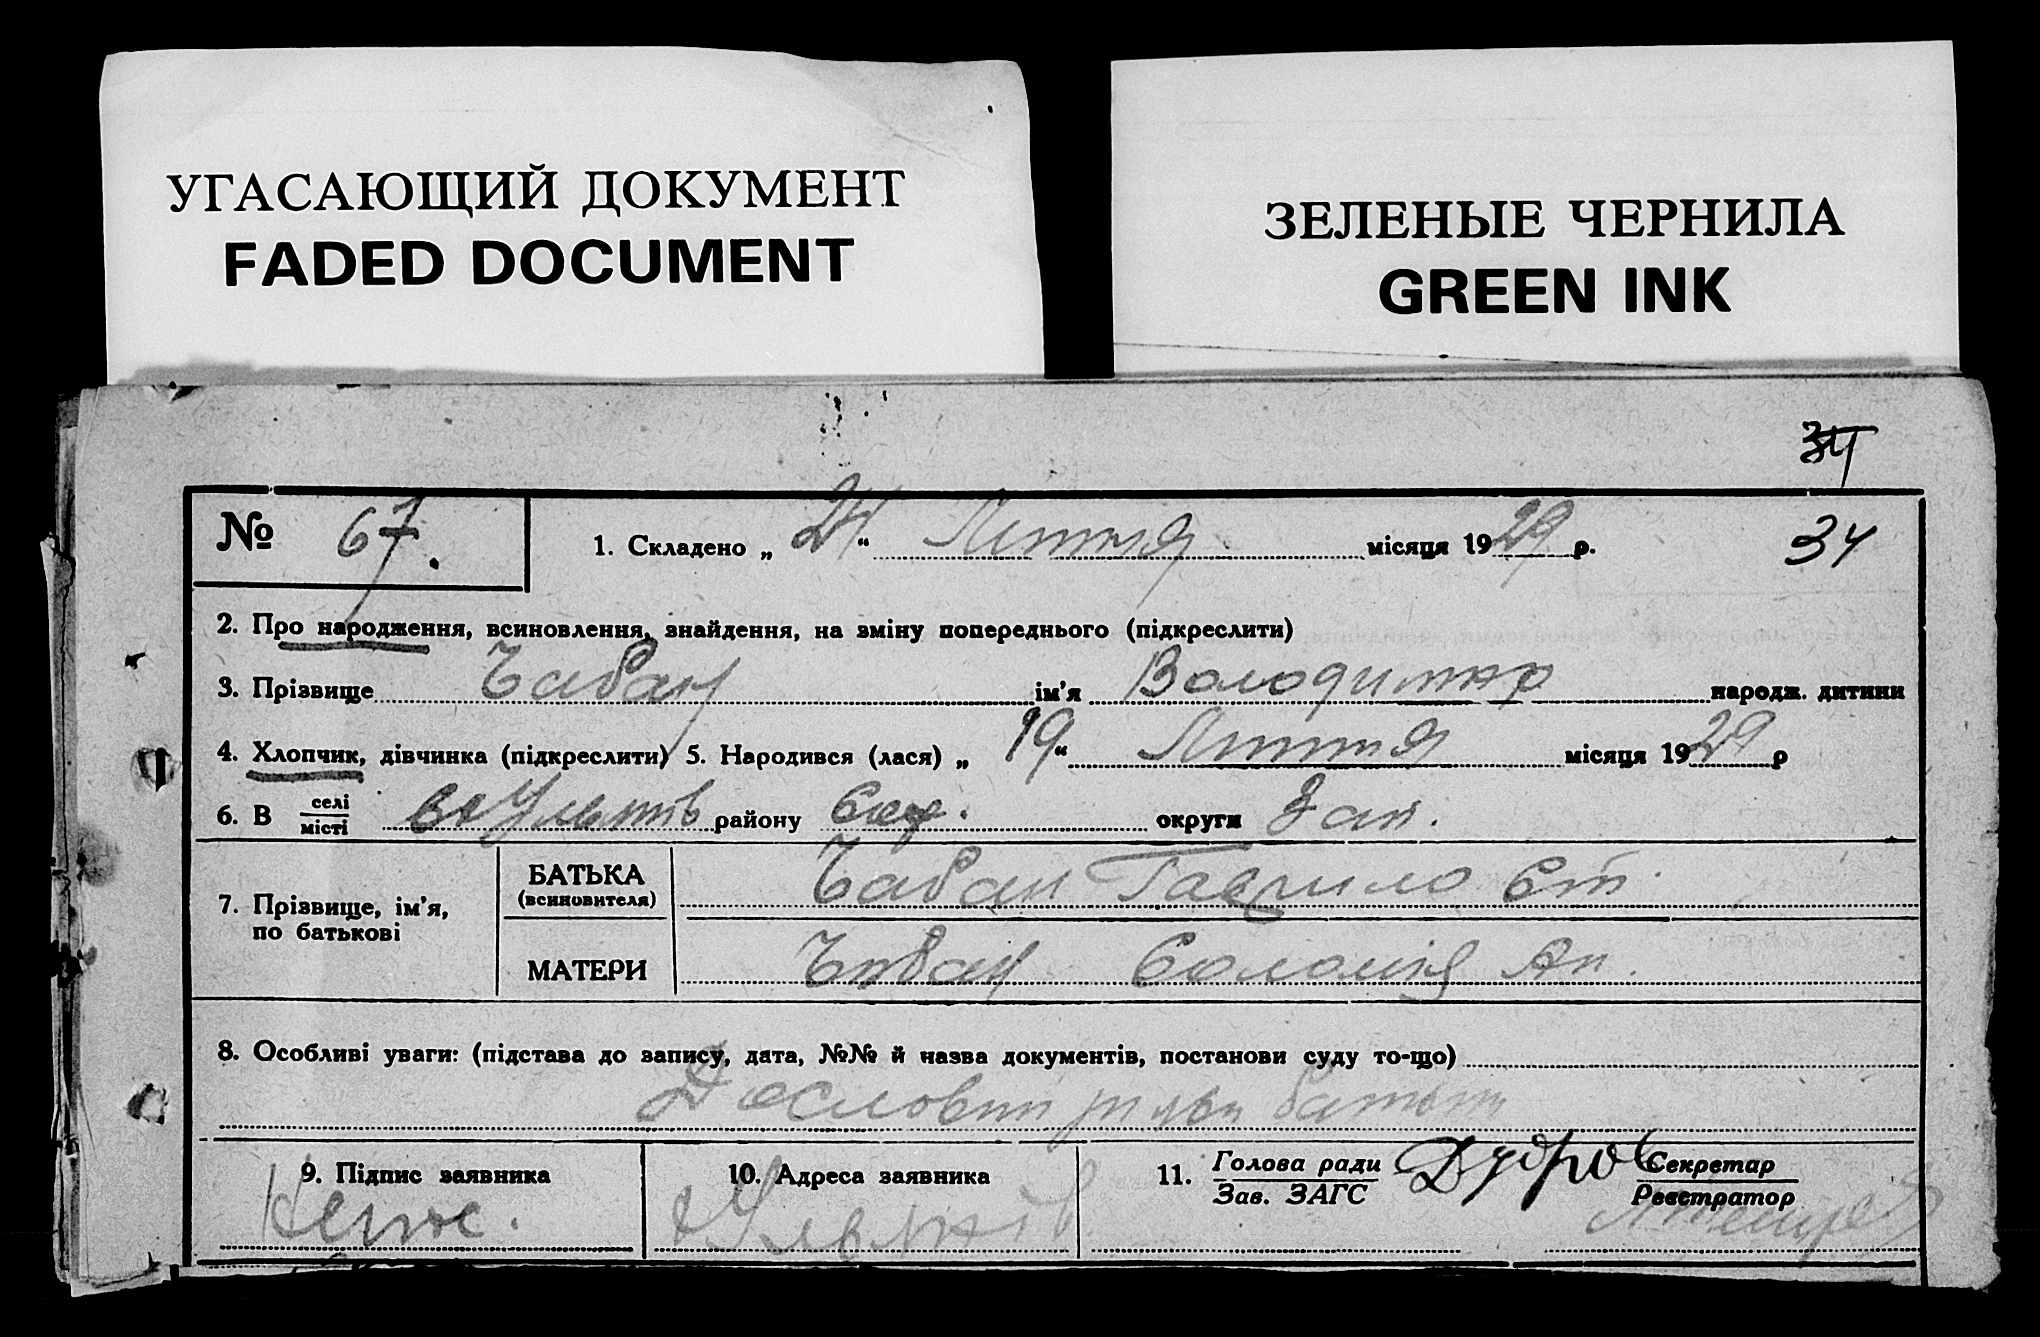 УГАСАЮЩИЙ ДОКУМЕНТ
FADED DOCUMENT
ЗЕЛЕНЫЕ ЧЕРНИЛА
GREEN INK
34
34
№ 67.
1. Складено „ 24 “ Лютня місяця 1929 р.
2. Про народження, всиновлення, знайдення, на зміну попереднього (підкреслити)
3. Прізвище Чабан ім'я Володимир народж. дитини
4. Хлопчик, дівчинка (підкреслити) 5. Народився (лася) „ 19 “ Лютня місяця 1929 р
6. В селі/місті району округи Зап.
7. Прізвище, ім'я, по батькові
БАТЬКА (всиновителя) Чабан Гаврило Ст.
МАТЕРИ Чабан Соломія Ап.
8. Особливі уваги: (підстава до запису, дата, №№ й назва документів, постанови суду то-що)
9. Підпис заявника
10. Адреса заявника
11. Голова ради
Зав. ЗАГС
Секретар
Реєстратор